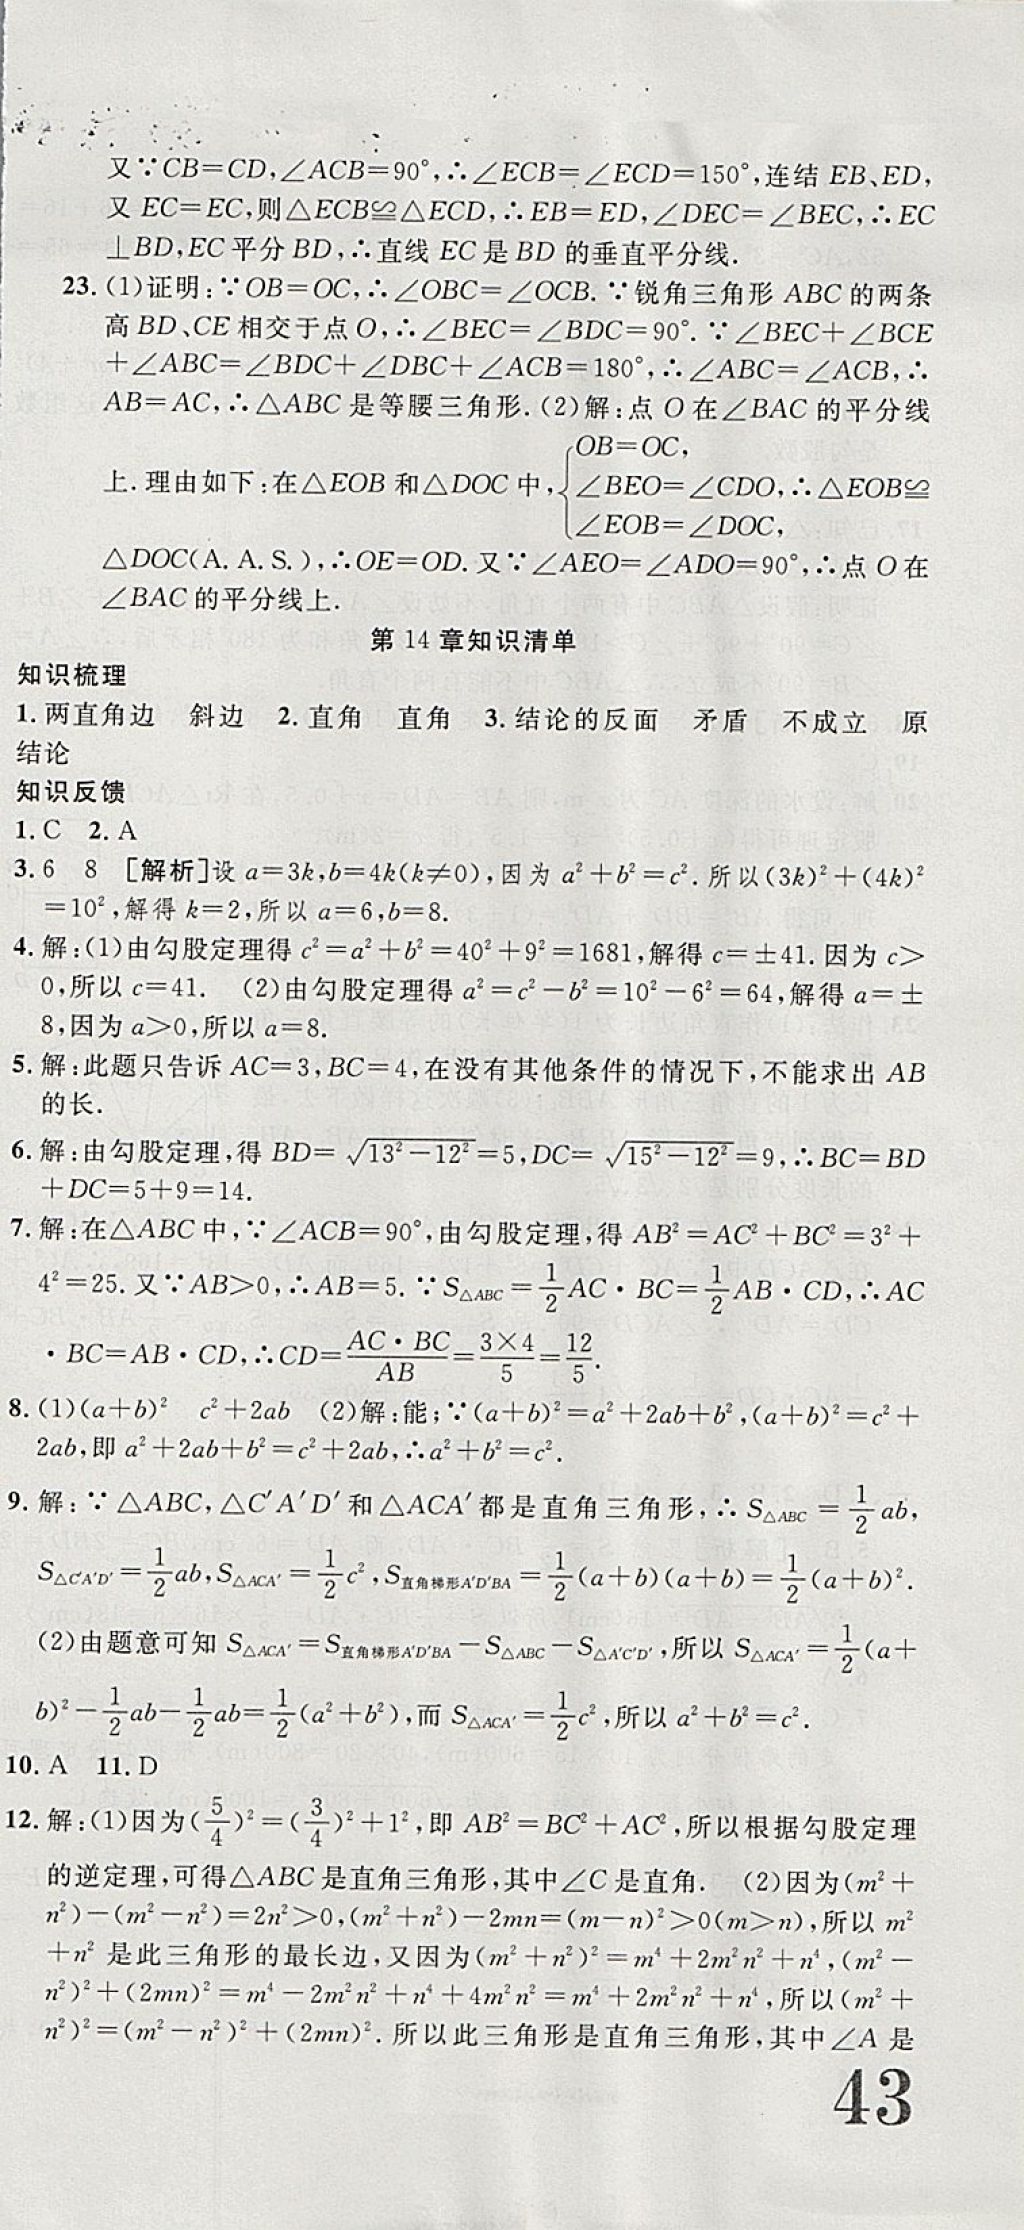 又∵CB=CD,∠ACB=90°,∴∠ECB=∠ECD=150°,连结 EB、ED,
又 EC=EC,则△ECB≌△ECD,∴EB=ED,∠DEC=∠BEC,∴EC
⊥BD,EC平分 BD,∴直线 EC 是 BD 的垂直平分线.
23. (1)证明:∵OB=OC,∴∠OBC=∠OCB. ∵锐角三角形 ABC 的两条
高 BD、CE 相交于点 O,∴∠BEC=∠BDC=90°. ∵∠BEC+∠BCE
+∠ABC=∠BDC+∠DBC+∠ACB=180°,∴∠ABC=∠ACB,∴
AB=AC,∴△ABC 是等腰三角形. (2)解:点 O 在∠BAC 的平分线
上. 理由如下:在△EOB 和△DOC 中,{OB=OC, ∠BEO=∠CDO, ∠EOB=∠DOC, ∴△EOB≌
△DOC(A. A. S. ),∴OE=OD. 又∵∠AEO=∠ADO=90°,∴点 O 在
∠BAC 的平分线上.
第 14 章知识清单
知识梳理
1. 两直角边 斜边 2. 直角 直角 3. 结论的反面 矛盾 不成立 原
结论
知识反馈
1. C 2. A
3. 6 8 [解析]设 a=3k,b=4k(k≠0),因为 a²+b²=c². 所以(3k)²+(4k)²
=10²,解得 k=2,所以 a=6,b=8.
4. 解:(1)由勾股定理得 c²=a²+b²=40²+9²=1681,解得 c=±41. 因为 c>
0,所以 c=41. (2)由勾股定理得 a²=c²-b²=10²-6²=64,解得 a=±
8,因为 a>0,所以 a=8.
5. 解:此题只告诉 AC=3,BC=4,在没有其他条件的情况下,不能求出 AB
的长.
6. 解:由勾股定理,得 BD=√(13²-12²)=5,DC=√(15²-12²)=9,∴BC=BD
+DC=5+9=14.
7. 解:在△ABC 中,∵∠ACB=90°,由勾股定理,得 AB²=AC²+BC²=3²+
4²=25. 又∵AB>0,∴AB=5. ∵S△ABC=1/2 AC·BC=1/2 AB·CD,∴AC
·BC=AB·CD,∴CD=AC·BC/AB=3×4/5=12/5.
8. (1)(a+b)² c²+2ab (2)解:能;∵(a+b)²=a²+2ab+b²,(a+b)²=c²+
2ab,即 a²+2ab+b²=c²+2ab,∴a²+b²=c².
9. 解:∵△ABC,△C′A′D′和△ACA′都是直角三角形,∴S△ABC=1/2 ab,
S△C′A′D′=1/2 ab,S△ACA′=1/2 c²,S直角梯形A′D′BA=1/2(a+b)(a+b)=1/2(a+b)².
(2)由题意可知 S△ACA′=S直角梯形A′D′BA-S△ABC-S△A′C′D′,所以 S△ACA′=1/2(a+
b)²-1/2 ab-1/2 ab=1/2(a²+b²),而 S△ACA′=1/2 c²,所以 a²+b²=c².
10. A 11. D
12. 解:(1)因为(5/4)²=(3/4)²+1²,即 AB²=BC²+AC²,所以根据勾股定理
的逆定理,可得△ABC 是直角三角形,其中∠C 是直角. (2)因为(m²+
n²)-(m²-n²)=2n²>0,(m²+n²)-2mn=(m-n)²>0(m>n),所以 m²
+n² 是此三角形的最长边,又因为(m²+n²)²=m⁴+2m²n²+n⁴,(m²-
n²)²+(2mn)²=m⁴-2m²n²+n⁴+4m²n²=m⁴+2m²n²+n⁴,所以(m²+
n²)²=(m²-n²)²+(2mn)². 所以此三角形是直角三角形,其中∠A 是
43